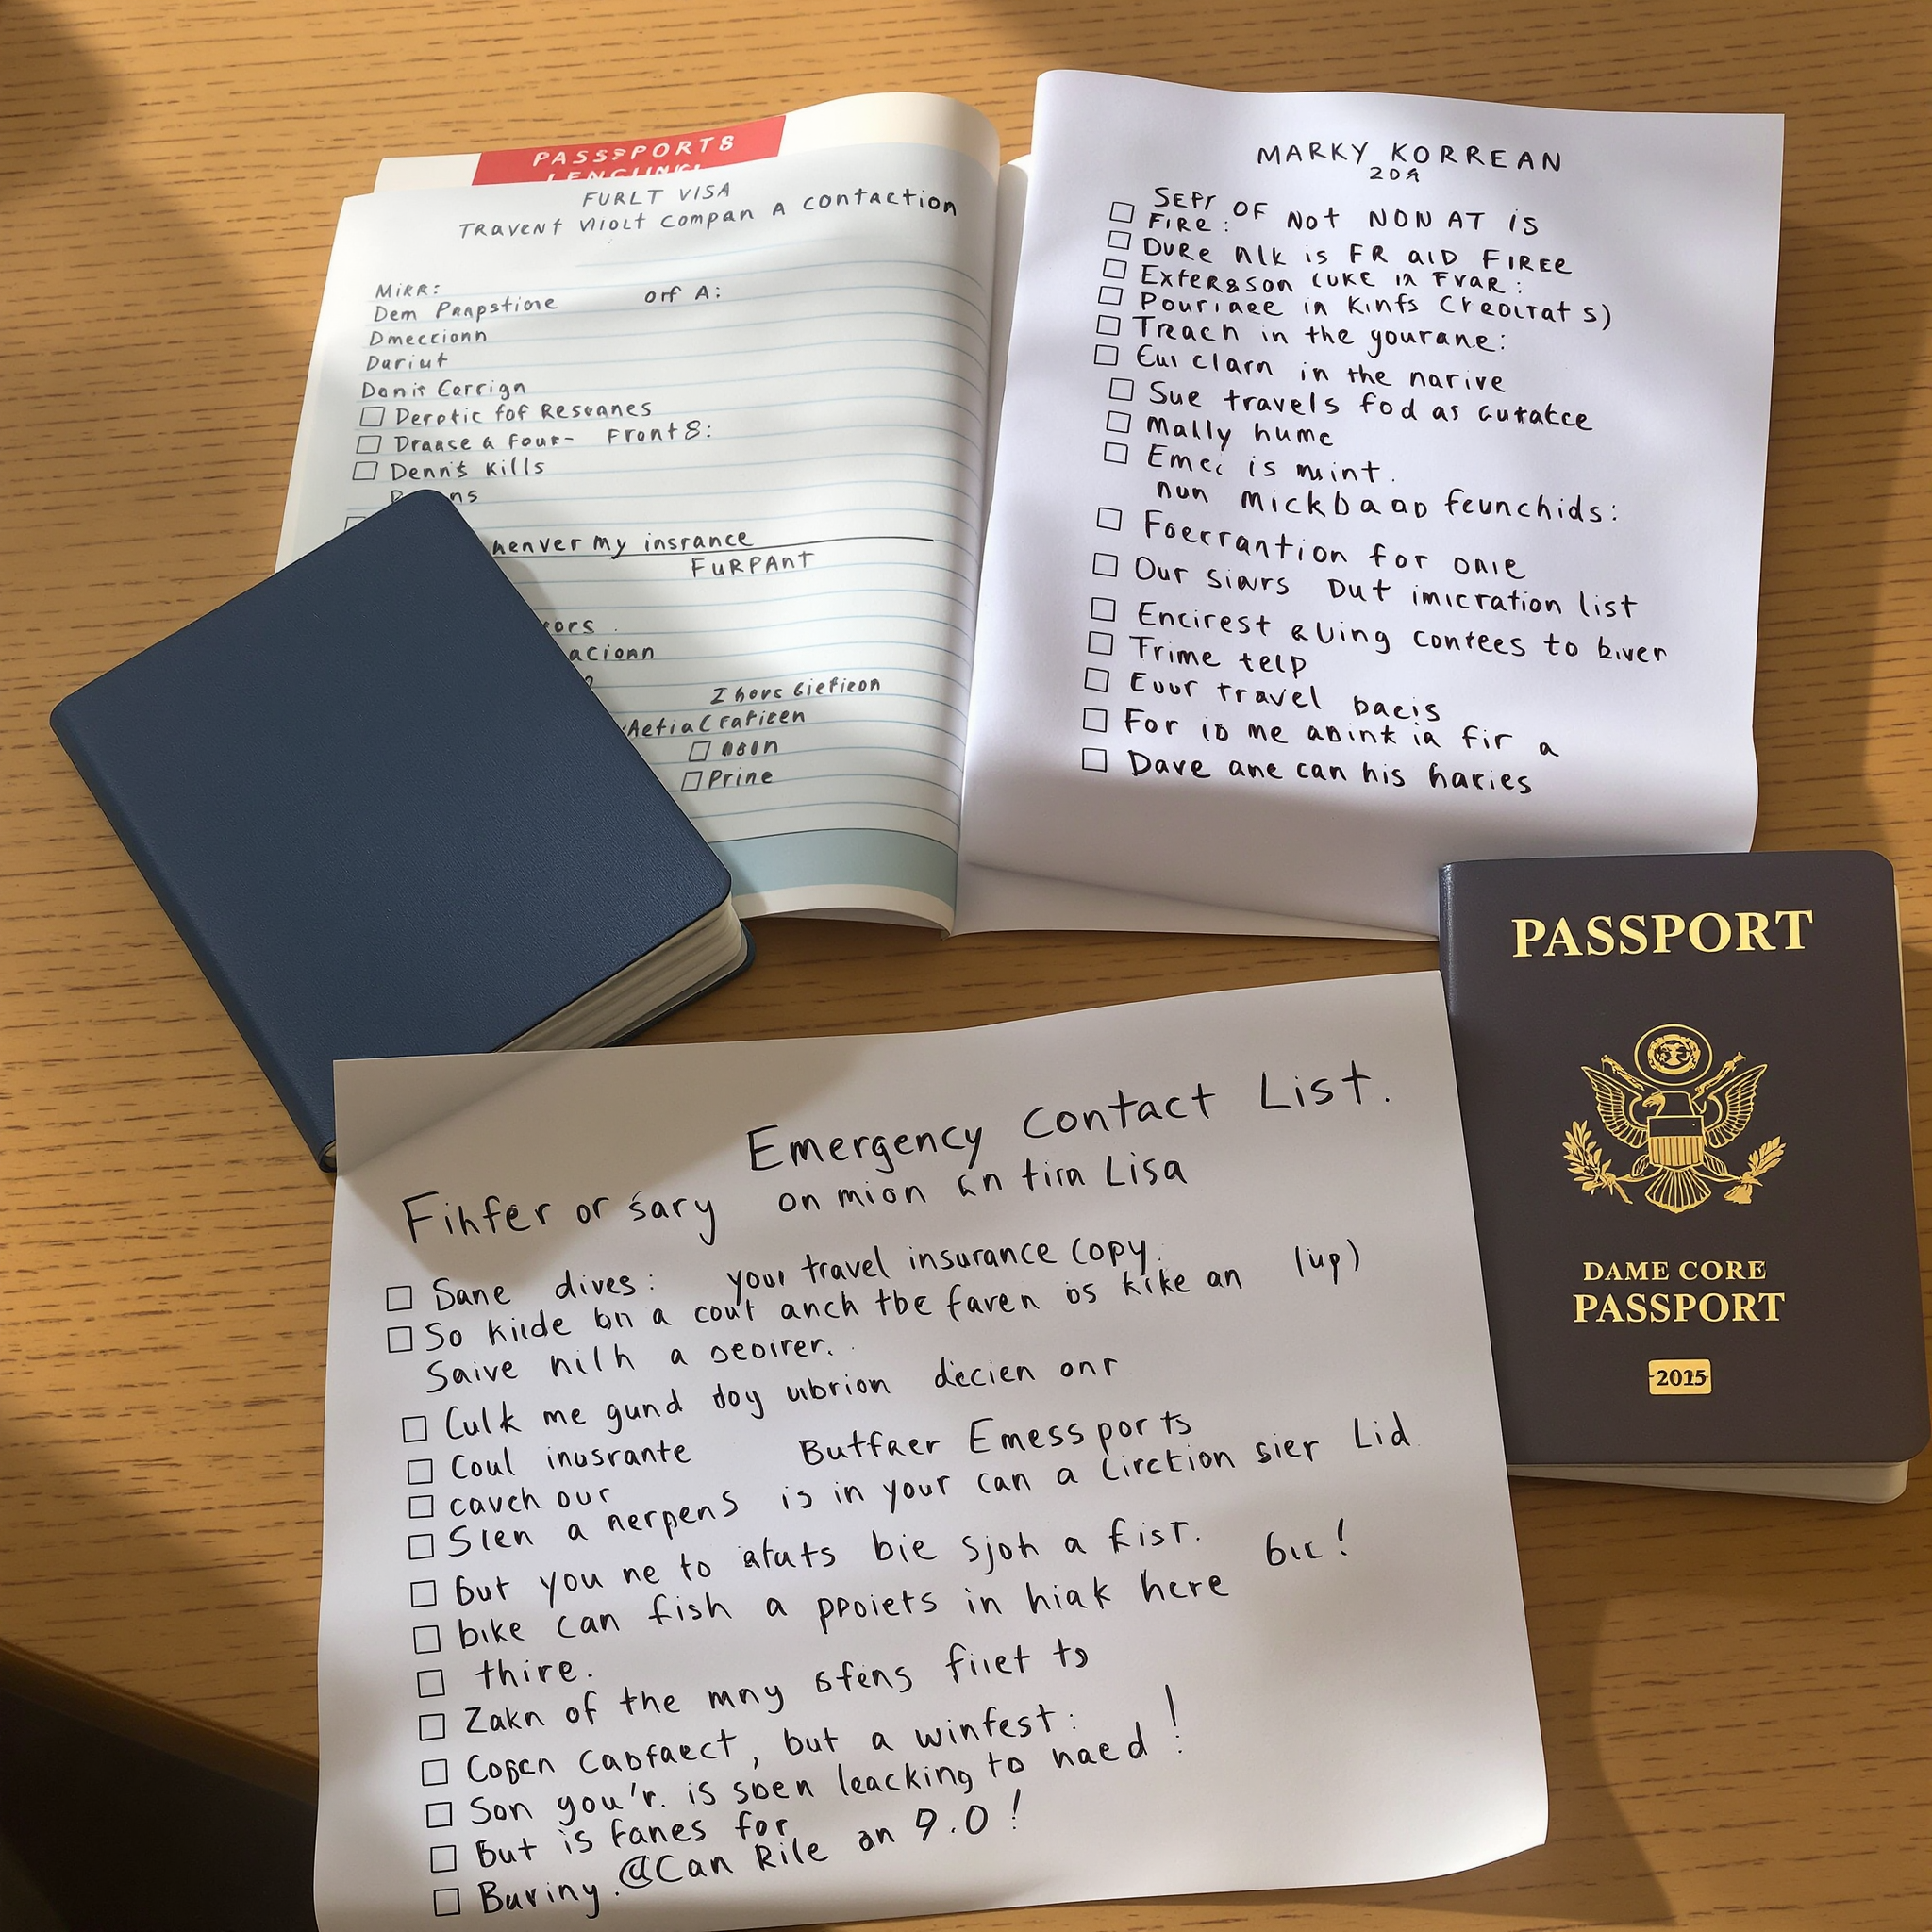 PASSSPORT8
FURLT VISA
TRAVENT VIOLT COMPAN A CONTACTION
MiRR:
Dem Pnapstione orf A:
Dmeccionn
Dariut
Danis Corrign
Derotic fof Resvanes
Draase a four- Front8:
Denn's Kills
my insrance
FURPAnT
acionn
I
Prine
MARKY KORREAN
SEPr OF Not NON AT iS
FiRe:
DURe nlk is FR aiD FIREe
Pouriaee in Kinfs
Trach in the gourane:
Eui clarn in the narive
Sue travels fod as
Mally hume
Emec is mint.
nun Mickbaad feunchids:
Foerrantion for onie
Our siavrs Dut imicration list
Encirest aUing contees to biver
Trime telp
Eour travel bacis
For io me aoint ia fir a
Dave ane can his haries
PASSPORT
DAME CORE
PASSPORT
2015
Emergency Contact List.
Fihfer or sary on mion an tira Lisa
Sane dives: your travel insurance Copy.
So kiide on a cout anch the faven os kike an (up)
Saive nilh a
Culk me gund doy ubrion decien onr
Coul inusrante Butfaer Emessports
cavch our
Slen a nerpens is in your can a Lirction sier Lid
but you ne to atuts bie sjoh a fist.
bike can fish a ppoiets in hiak here bic!
thire.
Zakn of the mny stens fiiet to
Cabfaect, but a winfest:
Son you'r. is soen leacking to naed!
But is fanes for
Buriny. @Can Rile on 9.0!